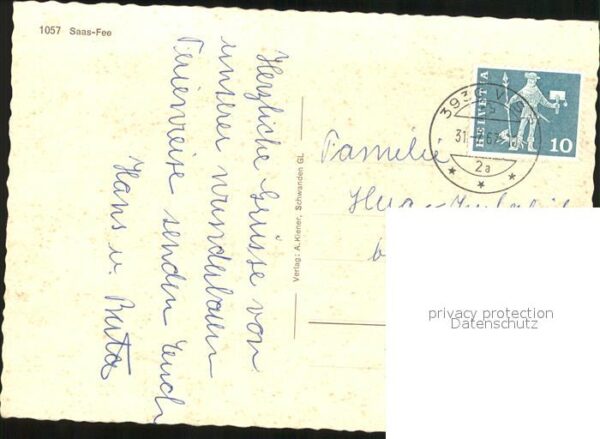 1057 Saas-Fee
Herzliche Grüsse von
unserer wunderbaren
Ferienreise senden Euch
Hans u. Berta
Verlag: A. Kiener, Schwanden GL
HELVETIA
10
3930
31
2a
Familie
privacy protection
Datenschutz